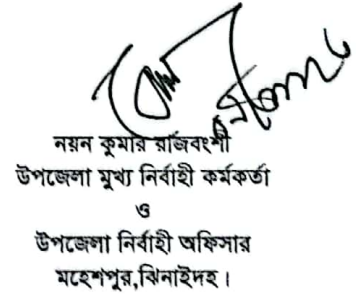 নয়ন কুমার রাজবংশী
উপজেলা মুখ্য নির্বাহী কর্মকর্তা
ও
উপজেলা নির্বাহী অফিসার
মহেশপুর,ঝিনাইদহ।